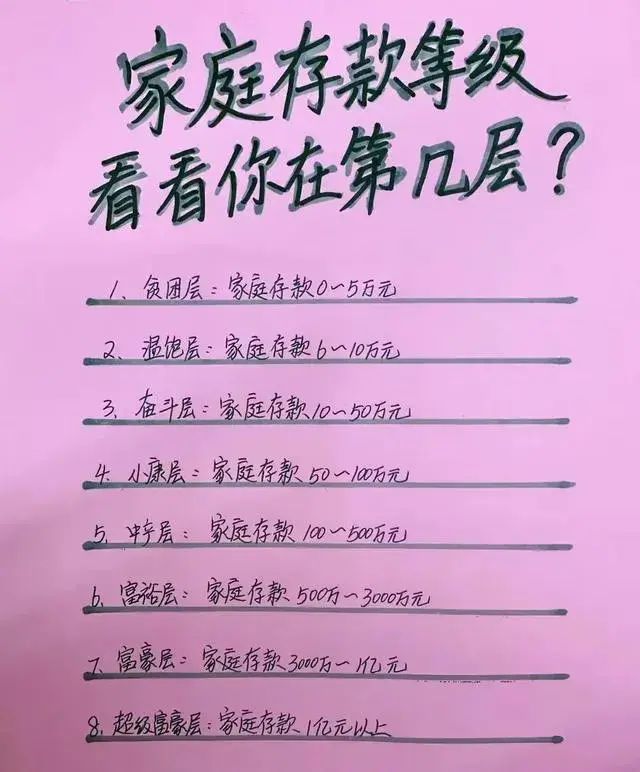 家庭存款等级
看看你在第几层?
1、贫困层:家庭存款0~5万元
2、温饱层:家庭存款6~10万元
3、奋斗层:家庭存款10~50万元
4、小康层:家庭存款50~100万元
5、中产层:家庭存款100~500万元
6、富裕层:家庭存款500万~3000万元
7、富豪层:家庭存款3000万~1亿元
8、超级富豪层:家庭存款1亿元以上